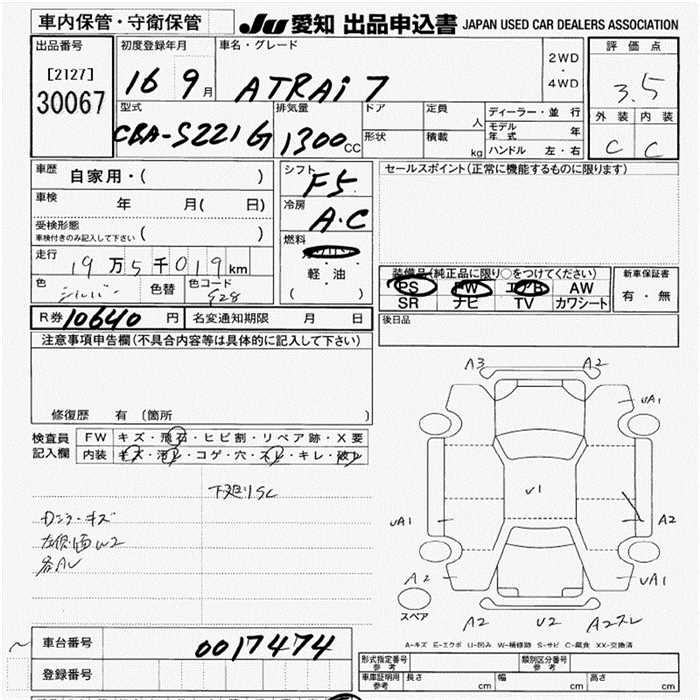 車内保管・守衛保管
JU 愛知 出品申込書 JAPAN USED CAR DEALERS ASSOCIATION
出品番号
[2127]
30067
初度登録年月
16 9月
車名・グレード
ATRAi 7
2WD
・
4WD
評価点
3.5
外装 内装
C C
型式
CBA-S221G
排気量
1300cc
ドア
形状
定員
人
積載
kg
ディーラー・並行
モデル年式 年
ハンドル 左・右
車歴
自家用・( )
車検
年 月( 日)
受検形態
車検付きのみ記入して下さい ( )
走行
19万5千019km
色
シルバー
色替
色コード
S28
シフト
F5
冷房
A・C
燃料
軽・油
( )
セールスポイント(正常に機能するものに限ります)
装備品(純正品に限り○をつけてください)
PS PW エアB AW
SR ナビ TV カワシート
新車保証書
有・無
後日品
R券 10640 円
名変通知期限 月 日
注意事項申告欄(不具合内容等は具体的に記入して下さい)
修復歴 有 〔箇所 〕
検査員
記入欄
FW キズ・飛石・ヒビ割・リペア跡・X要
内装 キズ・汚レ・コゲ・穴・スレ・キレ・破レ
下廻りSC
カンラ・キズ
左側面W2
各AU
A3 A2
UA1
U1
UA1
A2
A2
UA1
スペア
A2 U2 A2スレ
A-キズ E-エクボ U-凹み W-補修跡 S-サビ C-腐食 XX-交換済
車台番号
0017474
登録番号
形式指定番号
参考
類別区分番号
参考
車庫証明用
参考
長さ cm 幅 cm 高さ cm